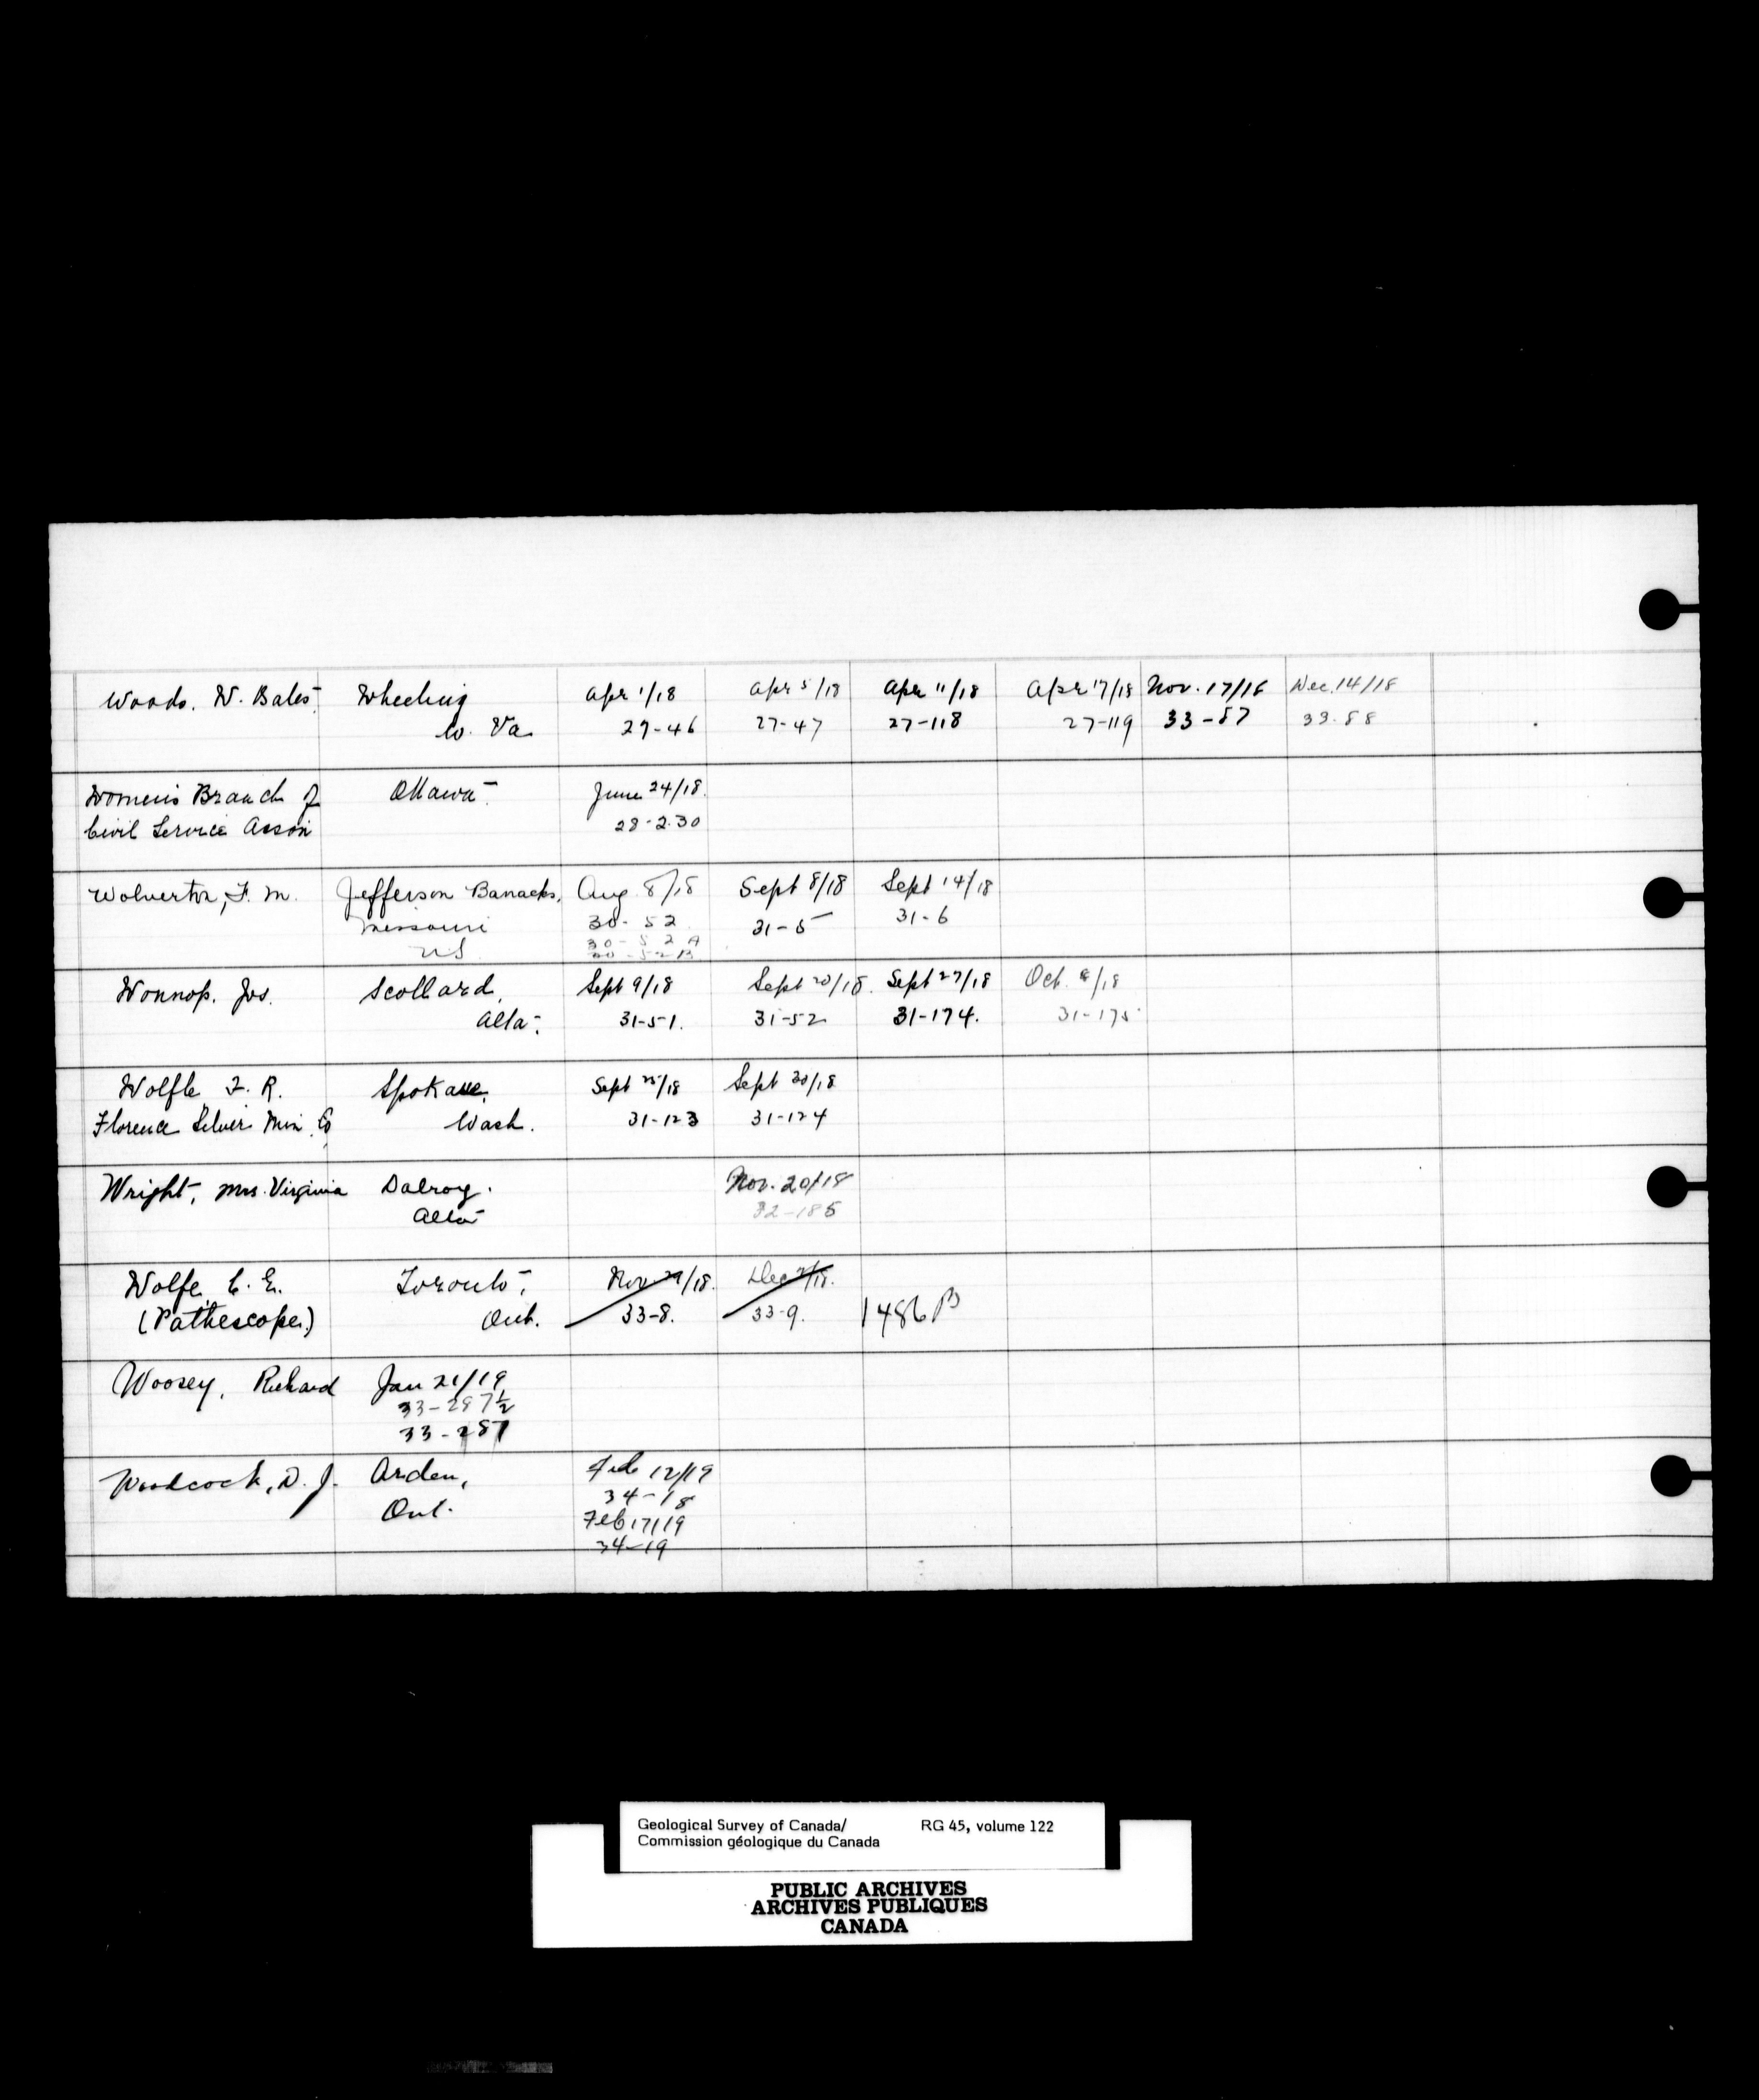 Woods, W. Bales Wheeling Apr 1/18 Apr 5/18 Apr 11/18 Apr 17/18 Nov. 17/18 Dec. 14/18
W. Va 27-46 27-47 27-118 27-119 33-57 33-58
Women's Branch of Ottawa June 24/18.
Civil Service Asson 28-230
Wolverton, F. M. Jefferson Barracks, Aug 8/18 Sept 8/18 Sept 14/18
Missouri 30-52 31-5 31-6
U.S. 30-52 A
30-52 B
Wonnop. Jos. Scollard, Sept 9/18 Sept 20/18. Sept 27/18 Oct. 8/18
Alta. 31-51. 31-52 31-174. 31-175
Wolfle F. R. Spokane, Sept 25/18 Sept 30/18
Florence Silver Min. Co Wash. 31-123 31-124
Wright, Mrs. Virginia Dalroy. Nov. 20/18
Alta 32-185
Wolfe, C. E. Toronto, Nov. 29/18. Dec 2/18.
(Pathescope.) Ont. 33-8. 33-9. 1486 B
Woosey, Richard Jan 21/19
33-287½
33-287
Woodcock, D. J. Arden, Feb 12/19
34-18
Ont. Feb 17/19
34-19
Geological Survey of Canada/ RG 45, volume 122
Commission géologique du Canada
PUBLIC ARCHIVES
ARCHIVES PUBLIQUES
CANADA